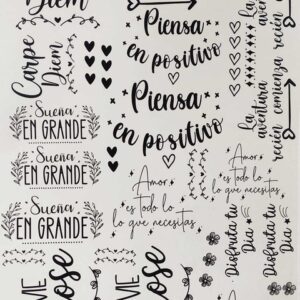 Diem
Carpe
Diem
Sueña
EN GRANDE
Sueña
EN GRANDE
Sueña
EN GRANDE
Piensa
en positivo
Piensa
en positivo
la
aventura
recién comienza
la
aventura
recién comienza
Amor
es todo lo
lo que necesitas
Amor
es todo lo
lo que necesitas
Disfruta tu
Día
Disfruta tu
Día
VIE
Rose
VIE
Rose